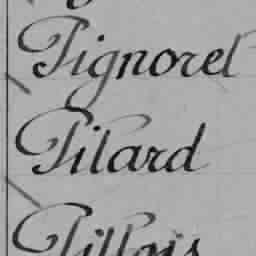 Pignorel
Pilard
Pillois